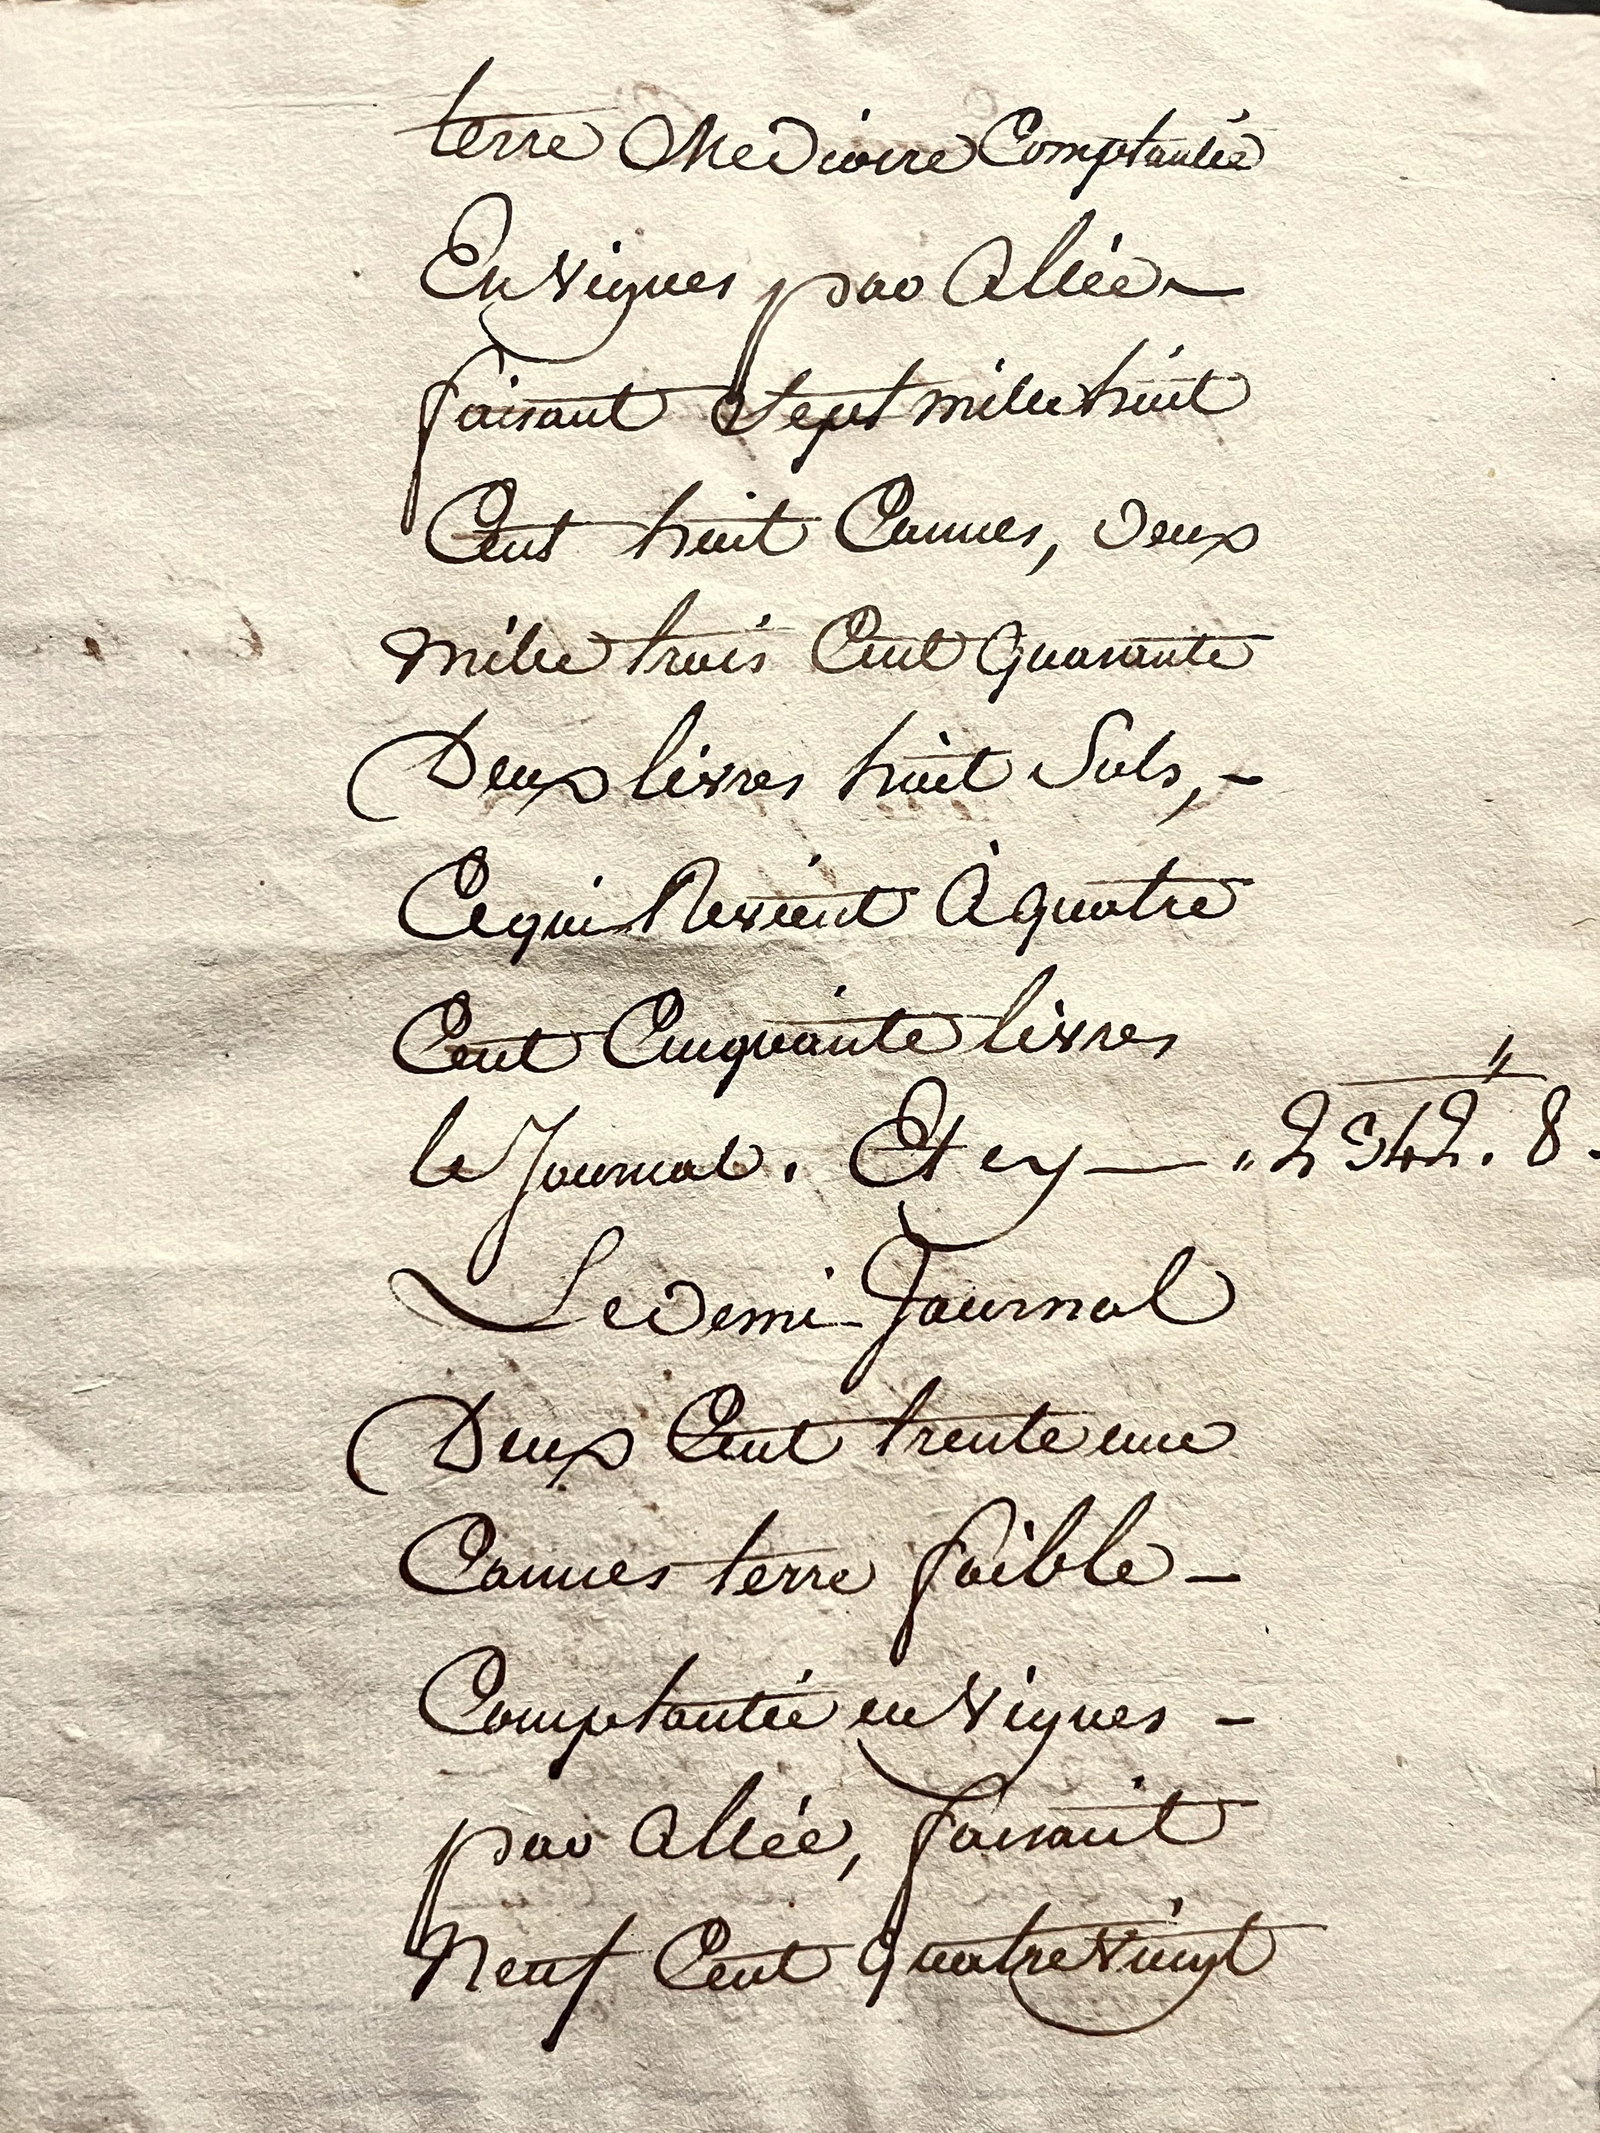 terre Mediocre Comptantée
En vignes par Allée -
faisant Sept mille huit
Cent huit Cannes, deux
mille trois Cent Quarante
Deux livres huit Sols, -
Ce qui Revient à quatre
Cent Cinquante livres
le Journal. Et cy — „ 2342." 8.
Le demi-Journal
Deux Cent trente une
Cannes terre faible -
Comptantée en vignes -
par Allée, faisant
Neuf Cent Quatre vingt